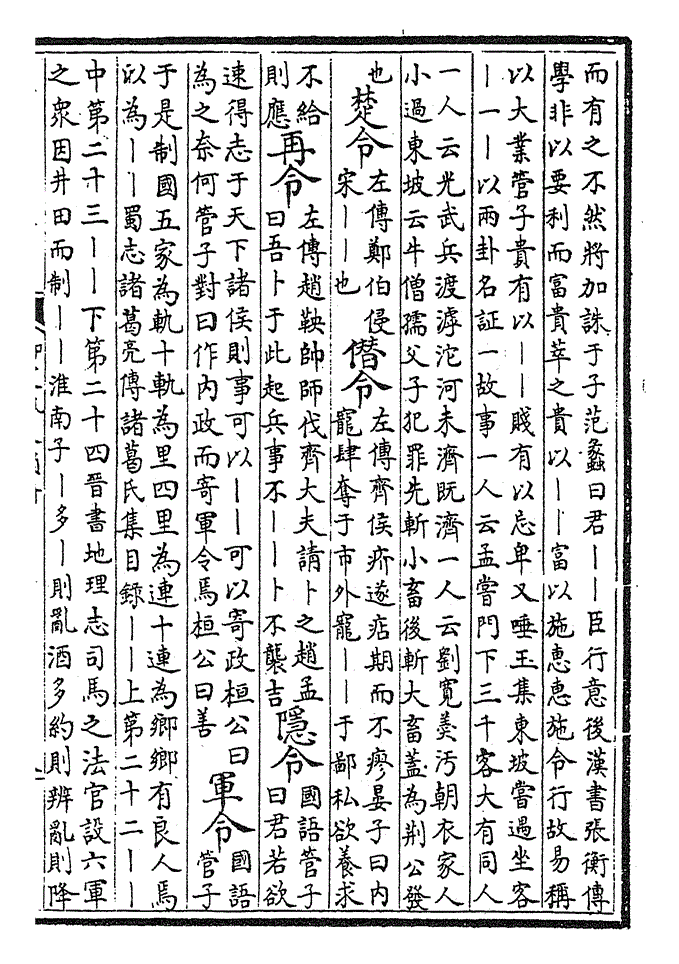 而有之不然將加誅于子范蠡曰君｜｜臣行意後漢書張衡傳
學非以要利而富貴萃之貴以｜｜富以施惠惠施令行故易稱
以大業管子貴有以｜｜賤有以忘卑又唾玉集東坡嘗過坐客
｜一｜以兩卦名証一故事一人云孟嘗門下三千客大有同人
一人云光武兵渡滹沱河未濟既濟一人云劉寬羮汚朝衣家人
小過東坡云牛僧孺父子犯罪先斬小畜後斬大畜蓋為荆公發
也
楚令
左傳鄭伯侵
宋｜｜也
僭令
左傳齊侯疥遂痁期而不瘳晏子曰内
寵肆奪于市外寵｜｜于鄙私欲養求
不給
則應
再令
左傳趙鞅帥師伐齊大夫請卜之趙孟
曰吾卜于此起兵事不｜｜卜不襲吉
隱令
國語管子
曰君若欲
速得志于天下諸侯則事可以｜｜可以寄政桓公曰
為之奈何管子對曰作内政而寄軍令焉桓公曰善
軍令
國語
管子
于是制國五家為軌十軌為里四里為連十連為鄉鄉有良人焉
以為｜｜蜀志諸葛亮傳諸葛氏集目錄｜｜上第二十二｜｜
中第二十三｜｜下第二十四晉書地理志司馬之法官設六軍
之衆因井田而制｜｜淮南子｜多｜則亂酒多約則辨亂則降